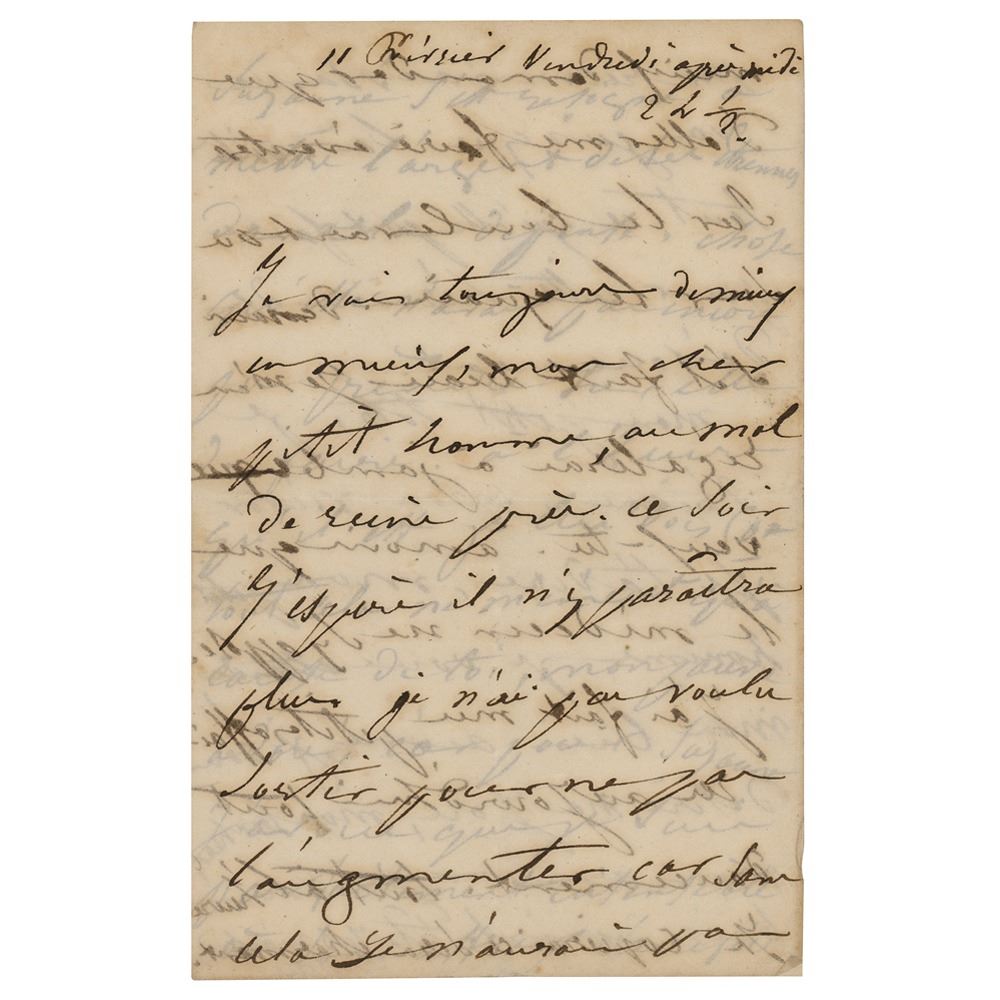 11 Février Vendredi après midi
2 h 1/2.
Je vais toujours de mieux
en mieux, mon cher
petit homme au mal
de reins près. ce soir
j'espère il n'y paraîtra
plus. je n'ai pas voulu
sortir pour ne pas
l'augmenter car sans
cela je n'aurais pas